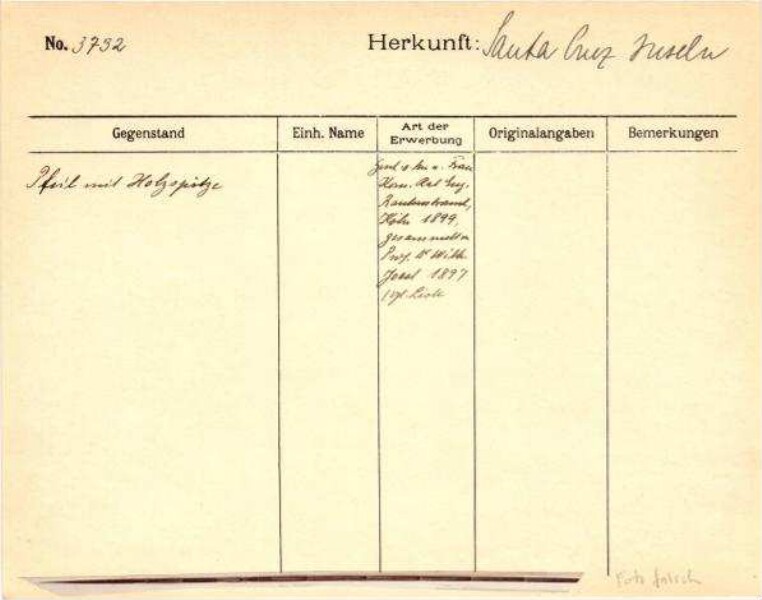 No. 3792
Herkunft: Santa Cruz Inseln
Gegenstand
Einh. Name
Art der Erwerbung
Originalangaben
Bemerkungen
Pfeil mit Holzspitze
u. Frau
Eug.
Rautenstrauch,
Köln 1899,
gesammelt v.
Prof. Dr Wilh.
Joest 1897
Foto falsch